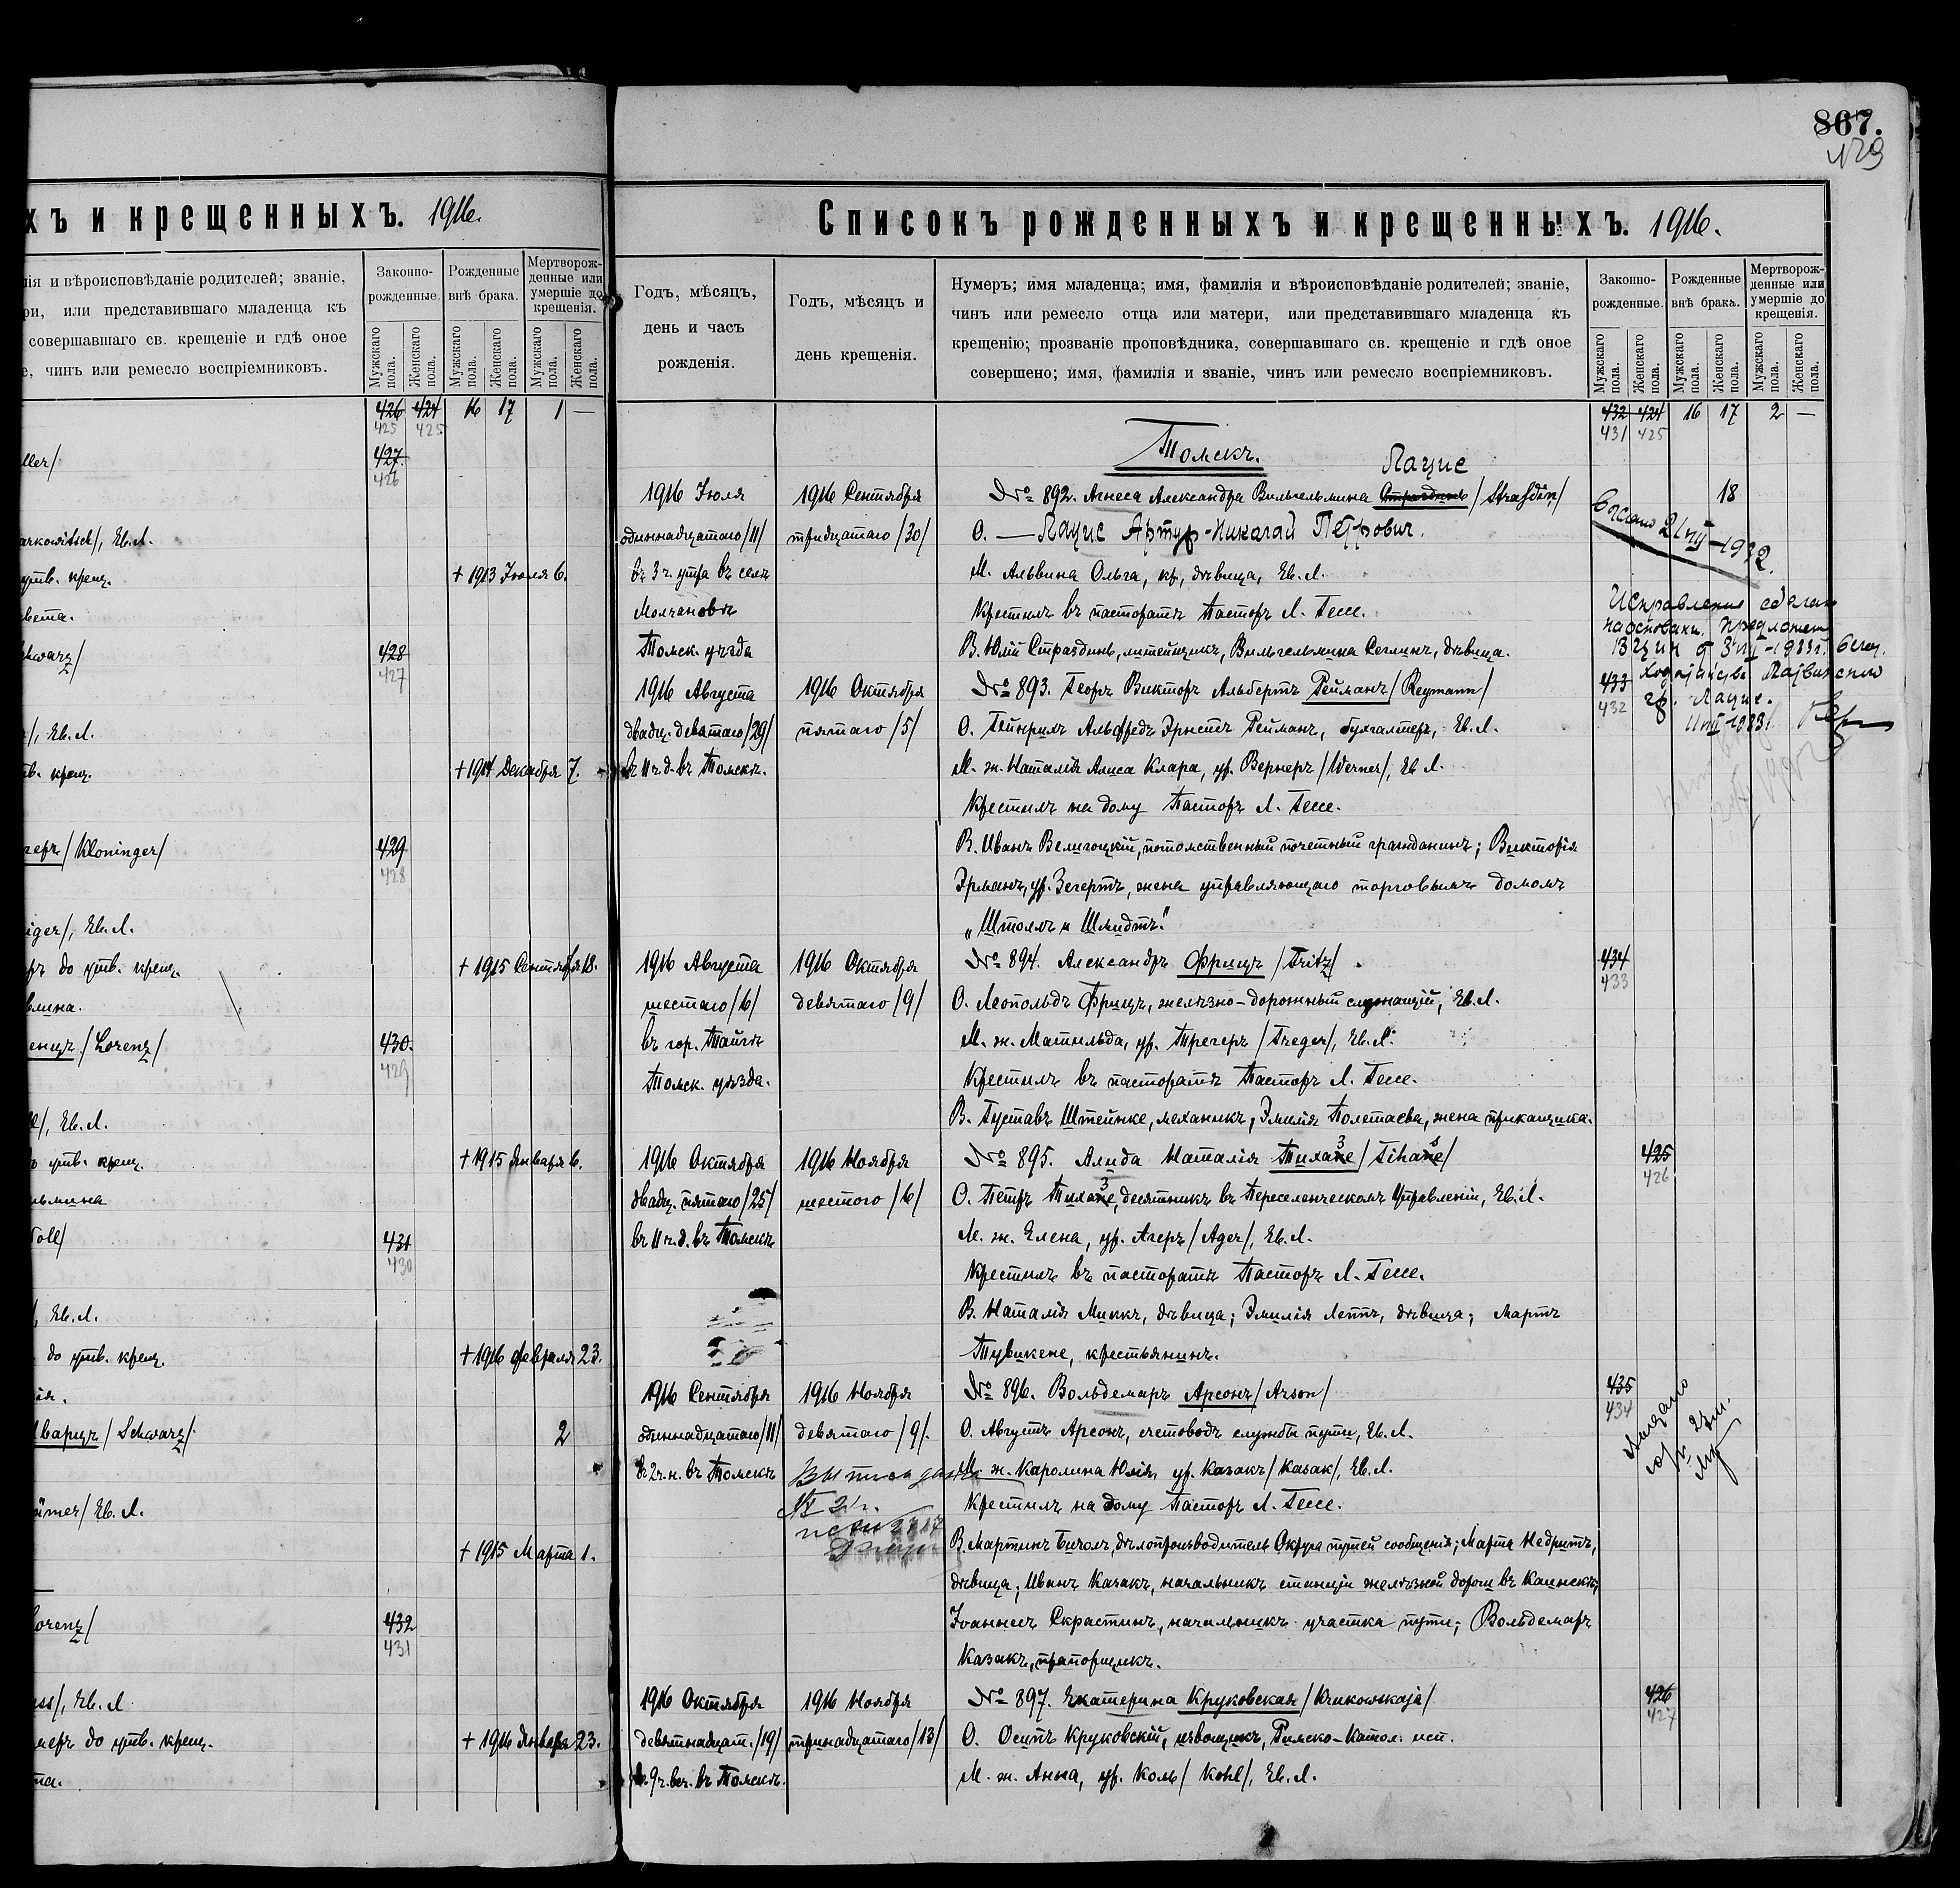 867.
хъ и крещенныхъ. 1916.
ія и вѣроисповѣданіе родителей; званіе,
ри, или представившаго младенца къ
совершавшаго св. крещеніе и гдѣ оное
е, чинъ или ремесло воспріемниковъ.
Законно-
рожденные.
Рожденные
внѣ брака.
Мертворож-
денные или
умершіе до
крещенія.
Мужскаго пола.
Женскаго пола.
Мужскаго пола.
Женскаго пола.
Мужскаго пола.
Женскаго пола.
426 424 16 17 1 —
425 425
ller/ 427.
426
arkowitsch/, Ев.Л.
утв. крещ. + 1913 Іюля 6.
вета.
chwarz/ 428
427
/, Ев.Л.
тв. крещ. + 1914 Декабря 7.
геръ/Kloninger/ 429
428
iger/, Ев.Л.
ръ до утв. крещ. + 1915 Сентября 18.
влина.
енцъ/Lorenz/ 430.
429
е/, Ев.Л.
ъ утв. крещ. + 1915 Января 6.
льмина
Toll/ 431
430
/, Ев.Л.
до утв. крещ. + 1916 Февраля 23.
ія.
Шварцъ/Schwarz/ 2
ämer/ Ев.Л.
+ 1915 Марта 1.
Lorenz/ 432
431
ss/, Ев.Л.
меръ до утв. крещ. + 1916 Января 23.
та.
Списокъ рожденныхъ и крещенныхъ. 1916.
Годъ, мѣсяцъ,
день и часъ
рожденія.
Годъ, мѣсяцъ и
день крещенія.
Нумеръ; имя младенца; имя, фамилія и вѣроисповѣданіе родителей; званіе,
чинъ или ремесло отца или матери, или представившаго младенца къ
крещенію; прозваніе проповѣдника, совершавшаго св. крещеніе и гдѣ оное
совершено; имя, фамилія и званіе, чинъ или ремесло воспріемниковъ.
Законно-
рожденные.
Рожденные
внѣ брака.
Мертворож-
денные или
умершіе до
крещенія.
Мужскаго пола.
Женскаго пола.
Мужскаго пола.
Женскаго пола.
Мужскаго пола.
Женскаго пола.
432 424 16 17 2 —
431 425
Томскъ.
Лацис
1916 Іюля 1916 Сентября № 892. Агнеса Александра Вильгельмина Страздинь /Strasdin/ 18
одиннадцатаго/11/ тридцатаго/30/ О. — Лацис Артур-Николай Петрович.
въ 3 ч. утра въ селѣ М. Альвина Ольга, кр., дѣвица, Ев.Л.
Молчановѣ Крестилъ въ пасторатѣ Пасторъ Л. Гессе.
Томск. уѣзда В. Юлій Страздинь, литейщикъ, Вильгельмина Сеглинъ, дѣвица.
2/VII-1932.
Исправление сделано
1916 Августа 1916 Октября № 893. Георгъ Викторъ Альбертъ Рейманъ/Reymann/ 433
432
гр. Лацис.
двадц. девятаго/29/ пятаго/5/ О. Гейнрихъ Альфредъ Эрнстъ Рейманъ, бухгалтеръ, Ев.Л.
въ 11 ч. д. въ Томскѣ. М. ж. Наталія Алиса Клара, ур. Вернеръ/Werner/, Ев.Л.
Крестилъ на дому Пасторъ Л. Гессе.
В. Иванъ Велигоцкій, потомственный почетный гражданинъ; Викторія
Эрманъ, ур. Зегертъ, жена управляющаго торговымъ домомъ
„Штолль и Шмидтъ“
1916 Августа 1916 Октября № 894. Александръ Фрицъ /Fritz/ 434
433
шестаго/6/ девятаго/9/ О. Леопольдъ Фрицъ, желѣзно-дорожный служащій, Ев.Л.
въ гор. Тайгѣ М. ж. Матильда, ур. Трегеръ/Treger/, Ев.Л.
Томск. уѣзда. Крестилъ въ пасторатѣ Пасторъ Л. Гессе.
В. Густавъ Штейнке, механикъ, Эмилія Полетаева, жена приказчика.
1916 Октября 1916 Ноября № 895. Алида Наталія Тихане/Tihane/ 425
426
двадц. пятаго/25/ шестого/6/ О. Петръ Тихане, десятникъ въ Переселенческомъ Управленіи, Ев.Л.
въ 11 ч. д. въ Томскѣ М. ж. Елена, ур. Агеръ/Ager/, Ев.Л.
Крестилъ въ пасторатѣ Пасторъ Л. Гессе.
В. Наталія Миккъ, дѣвица; Эмилія Леттъ, дѣвица; Мартъ
Тувикене, крестьянинъ.
1916 Сентября 1916 Ноября № 896. Вольдемаръ Арсонъ/Arson/ 435
434
одиннадцатаго/11/ девятаго/9/. О. Августъ Арсонъ, счетоводъ службы пути, Ев.Л.
въ 2 ч. н. въ Томскѣ М. ж. Каролина Юлія, ур. Казакъ/Kasak/, Ев.Л.
Крестилъ на дому Пасторъ Л. Гессе.
В. Мартинъ Бичоль, дѣлопроизводитель Округа путей сообщенія; Марта Недритъ,
дѣвица; Иванъ Казакъ, начальникъ станціи желѣзной дороги въ Каинскѣ;
Іоаннесъ Скрастинъ, начальникъ участка пути; Вольдемаръ
Казакъ, прапорщикъ.
1916 Октября 1916 Ноября № 897. Екатерина Круковская/Krukowskaja/ 426
427
девятнадцат./19/ тринадцатаго/13/ О. Осипъ Круковскій, извощикъ, Римско-Катол. исп.
въ 9 ч. веч. въ Томскѣ. М. ж. Анна, ур. Коль/Kohl/, Ев.Л.